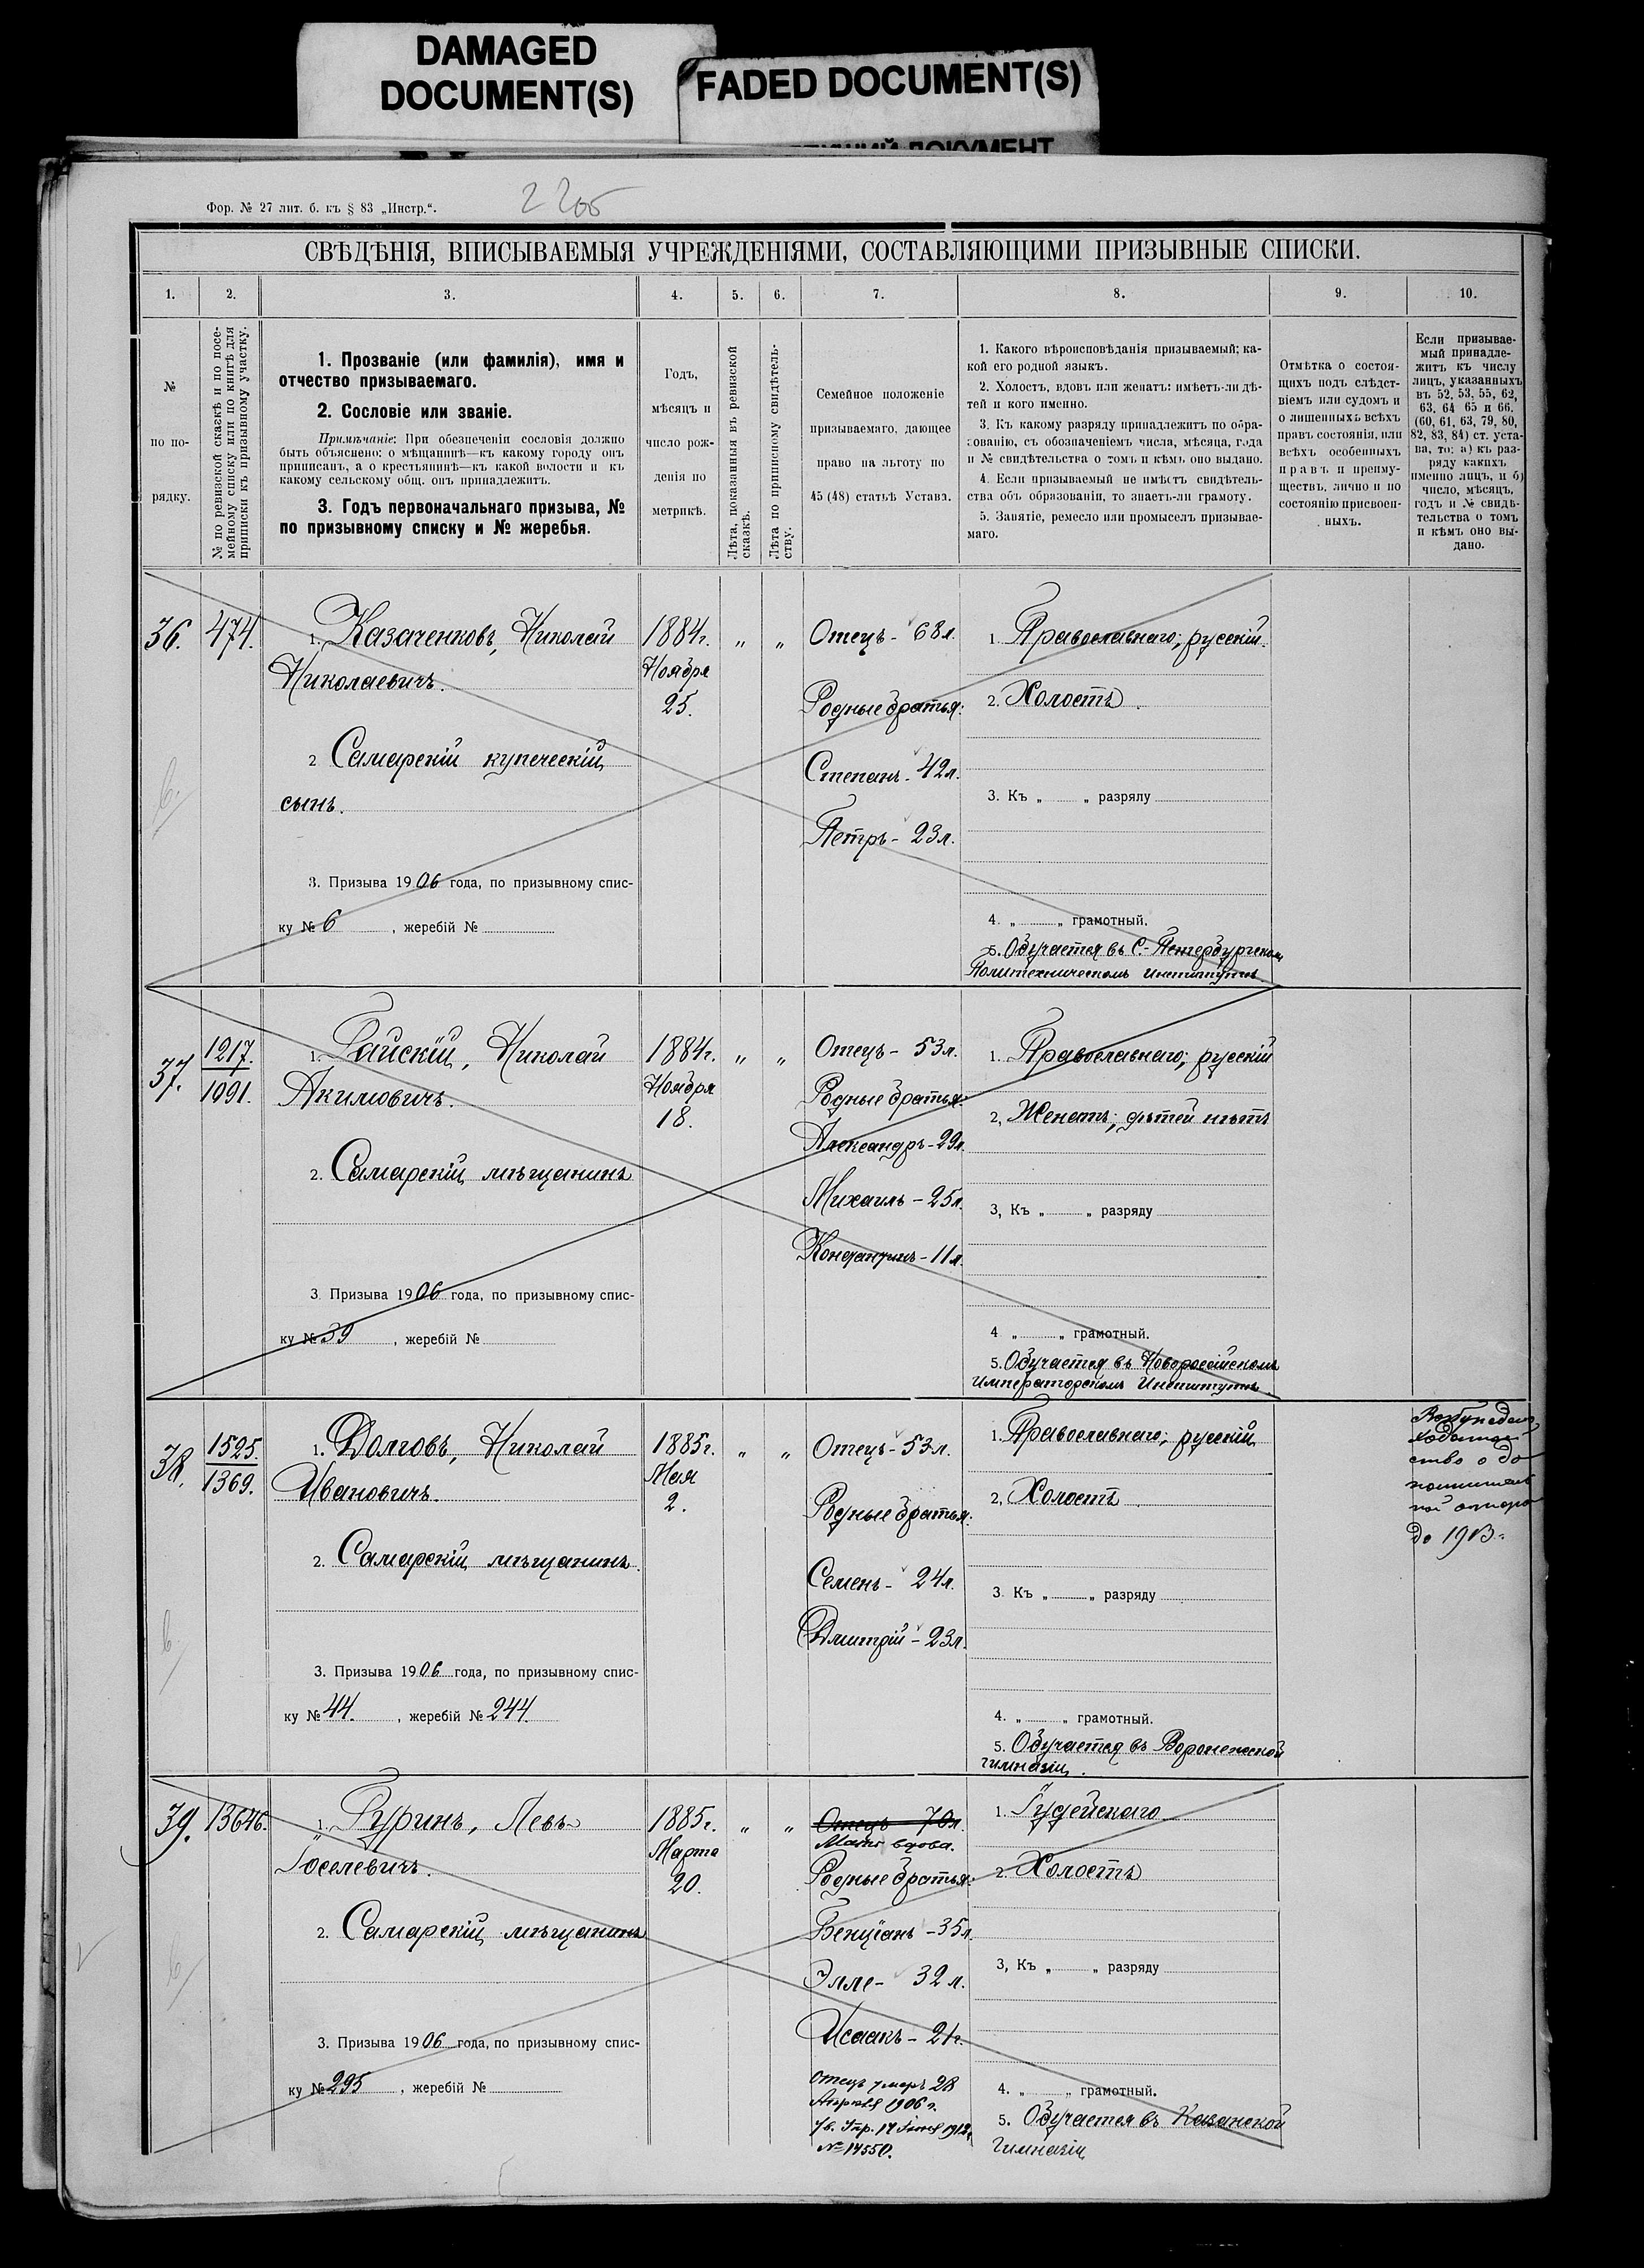 DAMAGED
DOCUMENT(S)
FADED DOCUMENT(S)
Фор. № 27 лит. б. къ § 83 „Инстр.“.
СВѢДѢНІЯ, ВПИСЫВАЕМЫЯ УЧРЕЖДЕНІЯМИ, СОСТАВЛЯЮЩИМИ ПРИЗЫВНЫЕ СПИСКИ.
1. 2. 3. 4. 5. 6. 7. 8. 9. 10.
№
по по-
рядку.
№ по ревизской сказкѣ и по посе-
мейному списку или по книгѣ для
приписки къ призывному участку.
1. Прозваніе (или фамилія), имя и
отчество призываемаго.
2. Сословіе или званіе.
Примѣчаніе: При обезпеченіи сословія должно
быть объяснено: о мѣщанинѣ—къ какому городу онъ
приписанъ, а о крестьянинѣ—къ какой волости и къ
какому сельскому общ. онъ принадлежитъ.
3. Годъ первоначальнаго призыва, №
по призывному списку и № жеребья.
Годъ,
мѣсяцъ и
число рож-
денія по
метрикѣ.
Лѣта, показанныя въ ревизской
сказкѣ.
Лѣта по приписному свидѣтель-
ству.
Семейное положеніе
призываемаго, дающее
право на льготу по
45 (48) статьѣ Устава.
1. Какого вѣроисповѣданія призываемый; ка-
кой его родной языкъ.
2. Холостъ, вдовъ или женатъ: имѣетъ-ли дѣ-
тей и кого именно.
3. Къ какому разряду принадлежитъ по обра-
зованію, съ обозначеніемъ числа, мѣсяца, года
и № свидѣтельства о томъ и кѣмъ оно выдано.
4. Если призываемый не имѣетъ свидѣтель-
ства объ образованіи, то знаетъ-ли грамоту.
5. Занятіе, ремесло или промыселъ призывае-
маго.
Отмѣтка о состоя-
щихъ подъ слѣдст-
віемъ или судомъ и
о лишенныхъ всѣхъ
правъ состоянія, или
всѣхъ особенныхъ
правъ и преиму-
ществъ, лично и по
состоянію присвоен-
ныхъ.
Если призывае-
мый принадле-
житъ къ числу
лицъ, указанныхъ
въ 52, 53, 55, 62,
63, 64 65 и 66,
(60, 61, 63, 79, 80,
82, 83, 84) ст. уста-
ва, то: а) къ раз-
ряду какихъ
именно лицъ, и б)
число, мѣсяцъ,
годъ и № свидѣ-
тельства о томъ
и кѣмъ оно вы-
дано.
36. 474.
1. Казаченковъ, Николай
Николаевичъ.
2 Самарскій купеческій
сынъ.
3. Призыва 1906 года, по призывному спис-
ку № 6, жеребій №
1884г.
Ноября
25.
„ „
Отецъ - 68л.
Родные братья:
Степанъ - 42л.
Петръ - 23л.
1. Православнаго; русскій.
2. Холостъ.
3. Къ „ „ разряду
4. „ „ грамотный.
5. Обучается въ С.-Петербургском
Политехническомъ институтѣ.
37. 1217.
1091.
1. Райскій, Николай
Акимовичъ.
2. Самарскій мѣщанинъ
3 Призыва 1906 года, по призывному спис-
ку № 39, жеребій №
1884г.
Ноября
18.
„ „
Отецъ - 53л.
Родные братья:
Александръ - 29л.
Михаилъ - 25л.
Константинъ - 11л.
1. Православнаго; русскій
2, Женатъ; дѣтей нѣтъ
3, Къ „ „ разряду
4 „ „ грамотный.
5. Обучается въ Новороссійскомъ
Императорскомъ Институтѣ.
38. 1525.
1369.
1. Долговъ, Николай
Ивановичъ.
2. Самарскій мѣщанинъ.
3. Призыва 1906 года, по призывному спис-
ку № 44., жеребій № 244.
1885г.
Мая
2.
„ „
Отецъ - 53л.
Родные братья:
Семенъ - 24л.
Дмитрій - 23л.
1. Православнаго; русскій
2, Холостъ.
3. Къ „ „ разряду
4. „ „ грамотный.
5. Обучается въ Воронежской
гимназіи.
ство о до
до 1913 г.
39. 13646.
1. Гуринъ, Левъ
Іоселевичъ.
2. Самарскій мѣщанинъ
3. Призыва 1906 года, по призывному спис-
ку № 295, жеребій №
1885г.
Марта
20.
„ „
Отецъ - 70л.
Мать вдова.
Родные братья:
Бенціанъ - 35л.
Элле - 32 л.
Исаакъ - 21г.
Отецъ умеръ 28
Апрѣля 1906 г.
№ 14550.
1. Іудейскаго
2. Холостъ
3, Къ „ „ разряду
4. „ „ грамотный.
5. Обучается въ Казанской
Гимназіи